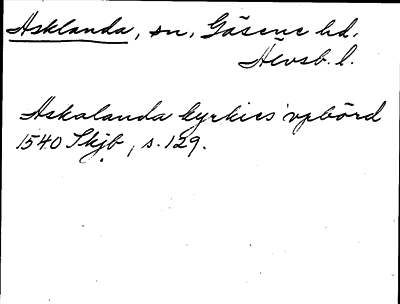 Asklanda, sn, Gäsene hd.
Älvsb. l.
Askalanda kyrkies vpbörd
1540 Skjb, s. 129.